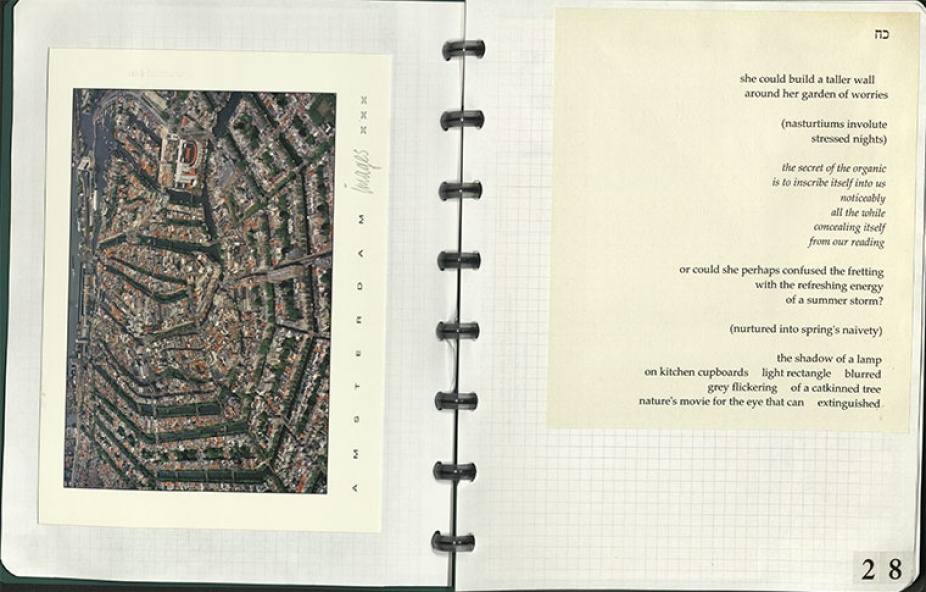 AMSTERDAM images xxx
כח
she could build a taller wall
around her garden of worries
(nasturtiums involute
stressed nights)
the secret of the organic
is to inscribe itself into us
noticeably
all the while
concealing itself
from our reading
or could she perhaps confused the fretting
with the refreshing energy
of a summer storm?
(nurtured into spring's naivety)
the shadow of a lamp
on kitchen cupboards light rectangle blurred
grey flickering of a catkinned tree
nature's movie for the eye that can extinguished
28